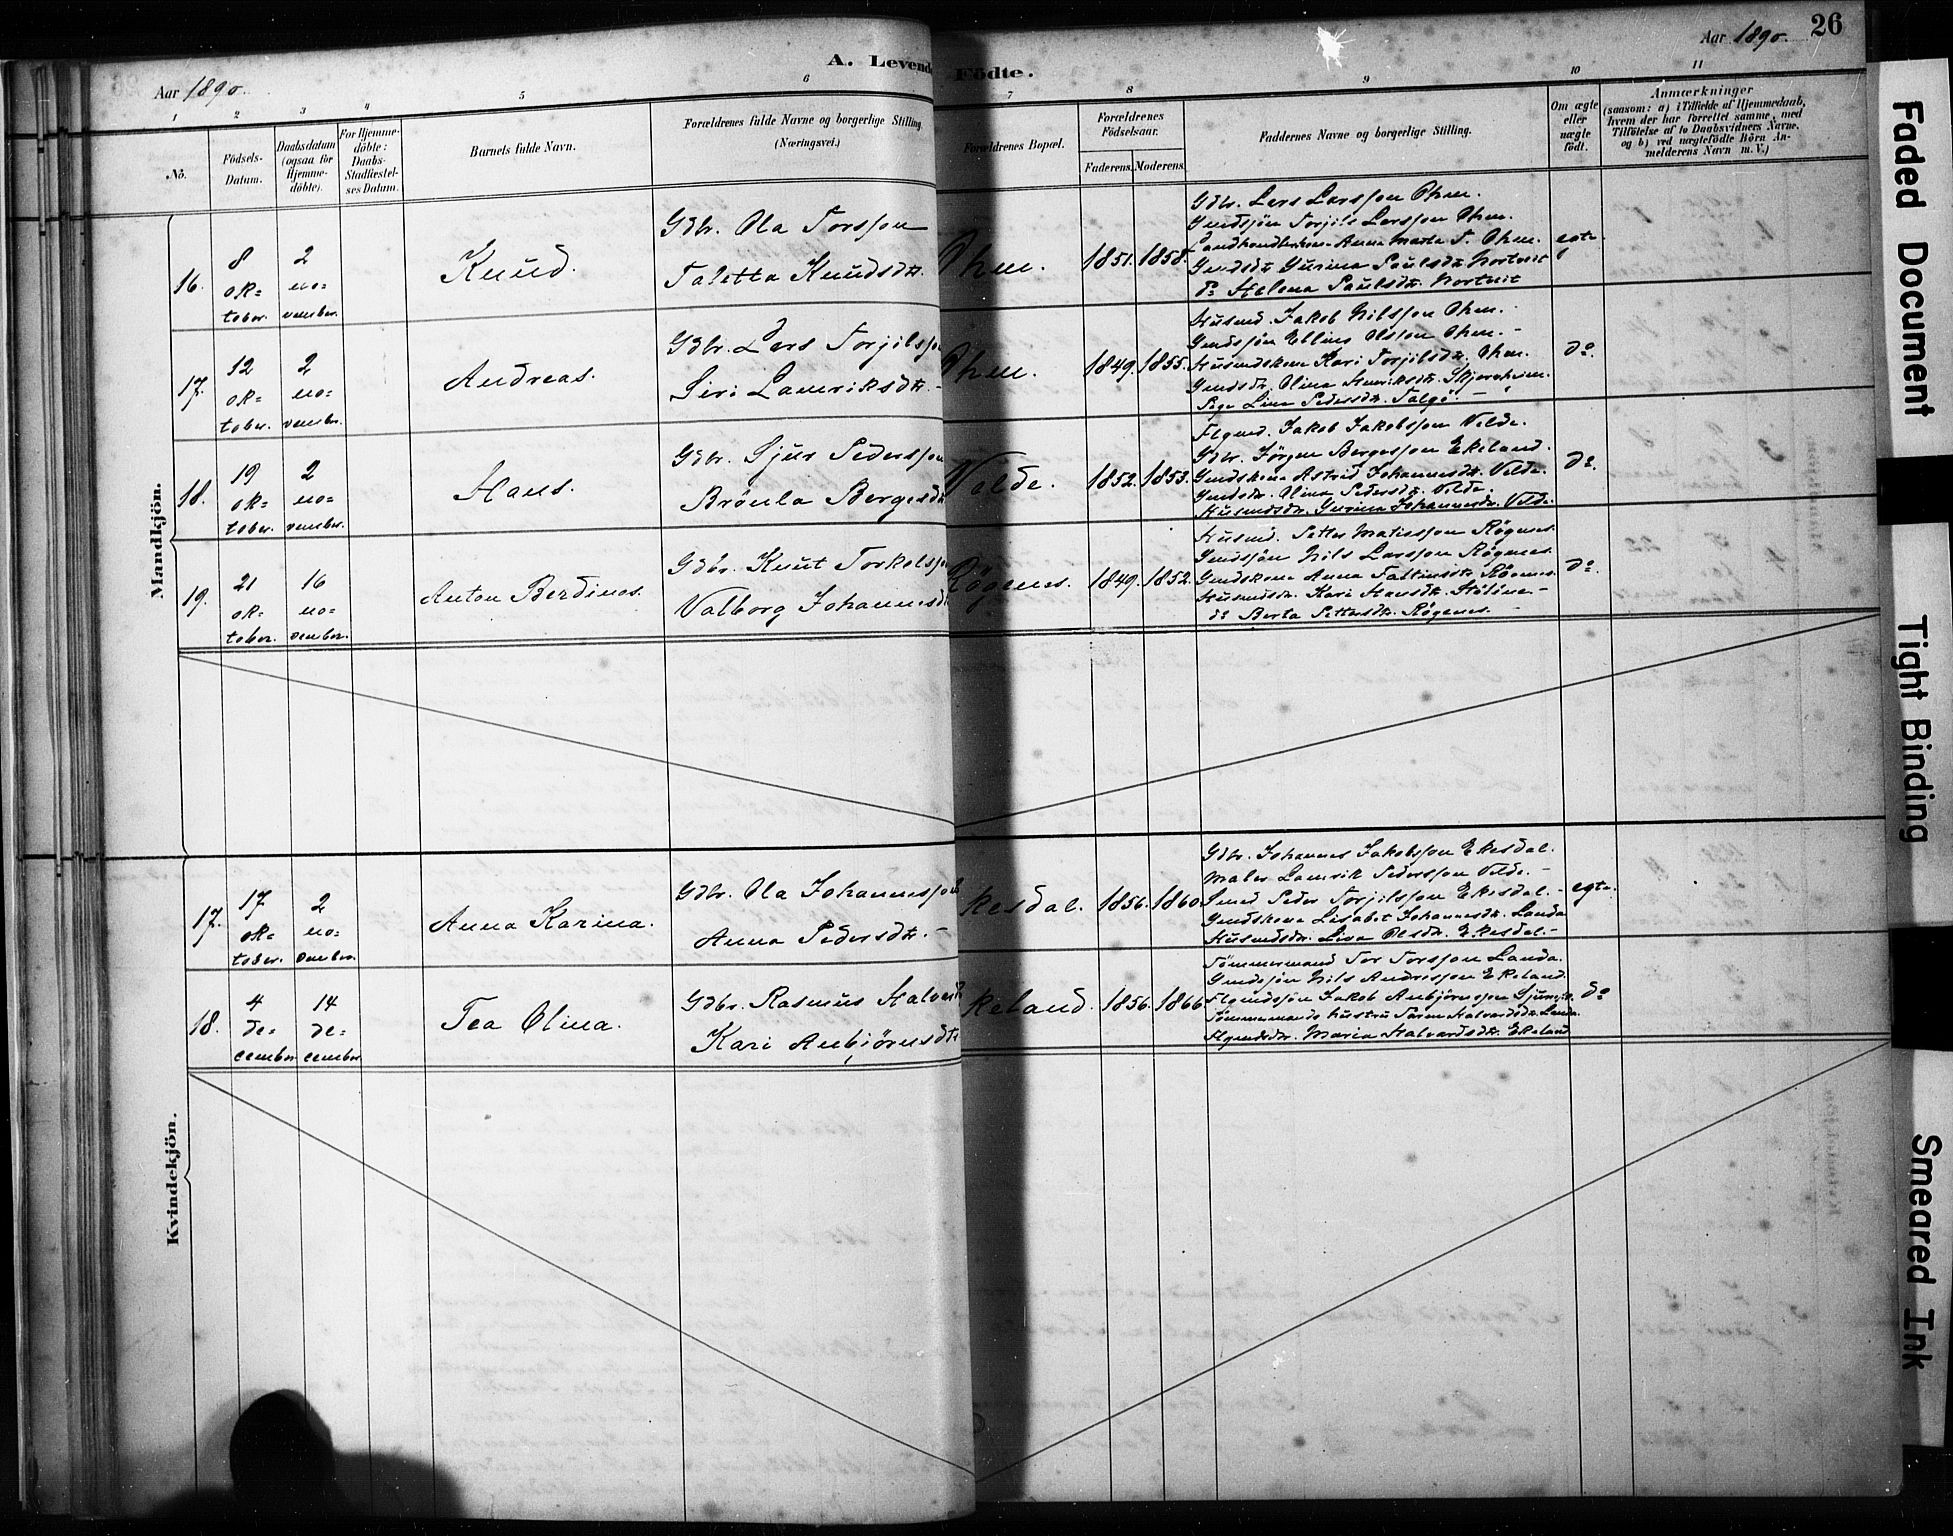 Aar 1890.
A. Levende Födte.
Aar 1890. 26
1 2 3 4 5 6 7 8 9 10 11
No.
Födsels-Datum.
Daabsdatum (ogsaa för Hjemme-döbte).
For Hjemme-döbte: Daabs-Stadfæstel-ses Datum.
Barnets fulde Navn.
Forældrenes fulde Navne og borgerlige Stilling. (Næringsvei.)
Forældrenes Bopæl.
Forældrenes Födselsaar.
Faderens. Moderens.
Faddernes Navne og borgerlige Stilling.
Om ægte eller uægte født.
Anmærkninger
(saasom: a) i Tilfælde af Hjemmedaab, hvem der har forrettet samme, med Tilföielse af to Daabsvidners Navne. og b) ved uægtefödte Börn An-melderens Navn m. V.)
Mandkjön.
16. 8 ok-tober. 2 no-vember. Knud.
Gdbr. Ola Torsson
Taletta Knudsdtr.
Ohm. 1851. 1858.
Gdbr. Lars Larsson Ohm.
Gmdsjøn Torjils Larsson Ohm.
Landhandlerkone Anna Marta T. Ohm.
Gmdsdtr Gurina Paulsdtr. Nortveit
do Helena Paulsdtr. Nortveit
egte
17. 12 ok-tober. 2 no-vember. Andreas.
Gdbr. Lars Torjilsson
Siri Lauriksdtr.
Ohm. 1849. 1855.
Husmd. Jakob Nilsson Ohm.
Gmdsjøn Elling Olsson Ohm.
Husmdskone Kari Torjilsdtr. Ohm.
Gmdsdtr. Olina Henriksdtr. Skjoreheim.
Pige Lina Pedersdtr. Talgø.
do.
18. 19 ok-tober. 2 no-vember. Hans.
Gdbr. Sjur Pedersson
Brönla Bergesdtr
Velde. 1852. 1853.
Flgmd. Jakob Jakobsson Velde.
Gdbr. Jørgen Bergesson Ekeland.
Gmdskone Astrid Johannesdtr. Velde.
Gmdsdtr. Olina Pedersdtr. Velde.
Husmdsdtr. Gurina Johannesdtr. Velde.
do.
19. 21 ok-tober. 16 no-vember. Anton Berdines.
Gdbr. Knut Torkelsson
Valborg Johannesdtr
Røgenes. 1849. 1852.
Husmd. Petter Matiasson Røgenes.
Gmdsjøn Nils Larsson Røgenes.
Gmdskone Anna Røgenes.
Husmdsdtr. Kari Hansdtr.
do Berta Pettersdtr. Røgenes.
do.
Kvindekjön.
17. 17 ok-tober. 2 no-vember. Anna Karina.
Gdbr. Ola Johannesson
Anna Pedersdtr.
kesdal. 1856. 1860.
Gdbr. Johannes Jakobsson Ekesdal.
Maler Laurik Pedersson Velde.
Smed Peder Torjilsson Ekesdal.
Gmdskone Lisabet Johannesdtr. Landa
Husmdsdtr. Liva Olsdtr. Ekesdal.
egte.
18. 4 de-cember. 14 de-cember. Tea Olina.
Gdbr. Rasmus Halvards
Kari Anbjörnsdtr
keland. 1856. 1866.
Tömmermand Tor Torsson Landa.
Gmdsjøn Nils Andrisson Ekeland.
Flgmdsjøn Jakob Anbjörnsson
Tømmermands hustru Halvardsdtr. Landa.
Flgmdsdtr. Maria Halvardsdtr. Ekeland
do
Faded Document
Tight Binding
Smeared Ink